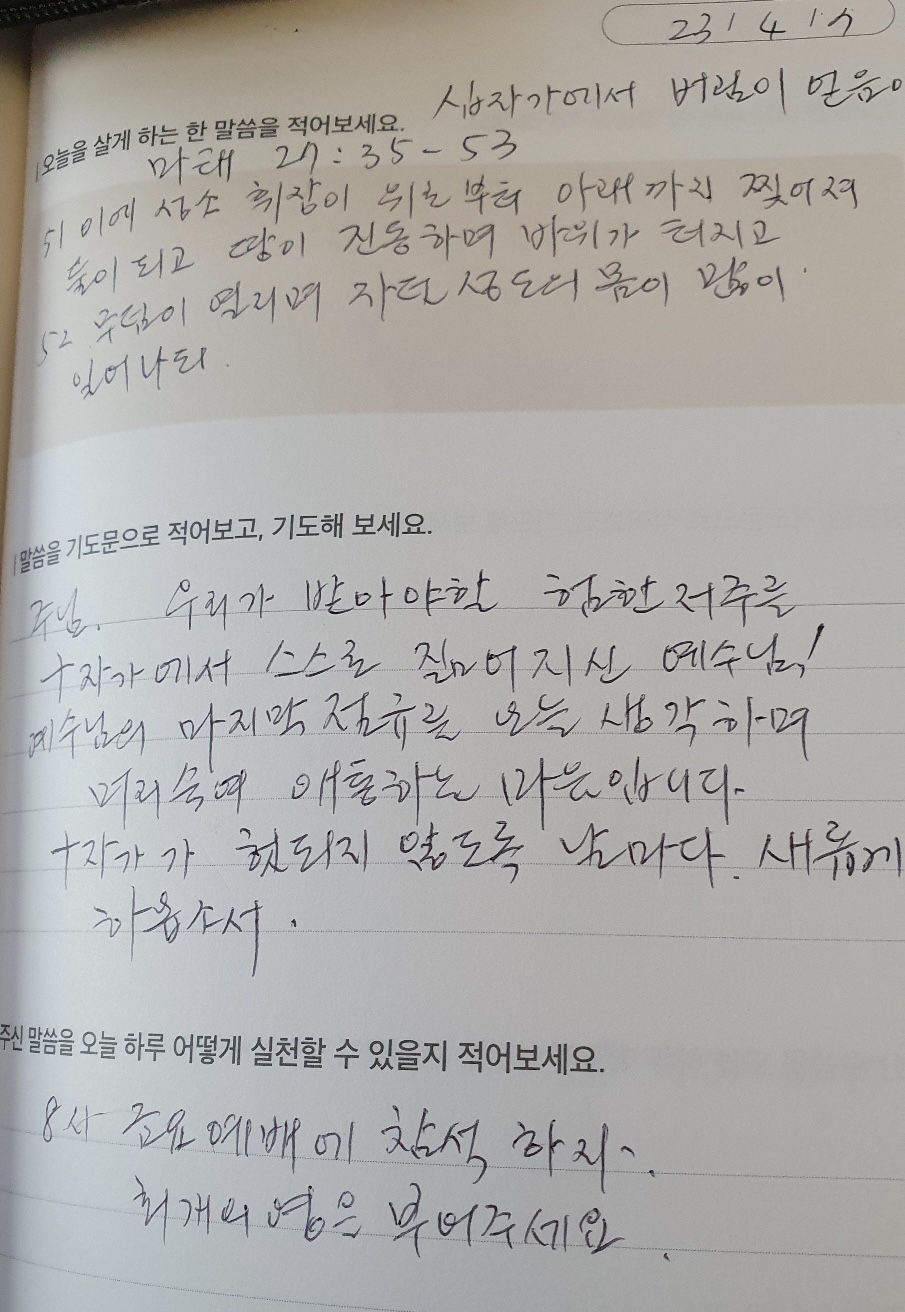 231 4 1
십자가에서 버림이 얻음이
|오늘을 살게 하는 한 말씀을 적어보세요.
마태 27:35-53
51 이에 성소 휘장이 위로 부터 아래까지 찢어져
둘이 되고 땅이 진동하며 바위가 터지고
52 무덤이 열리며 자던 성도의 몸이 많이
일어나되.
| 말씀을 기도문으로 적어보고, 기도해 보세요.
주님. 우리가 받아야할 험한 저주를
十자가에서 스스로 짊어지신 예수님!
예수님의 마지막 절규를 오늘 생각하며
머리숙여 애통하는 마음입니다.
十자가가 헛되지 않도록 날마다. 새롭게
하옵소서.
주신 말씀을 오늘 하루 어떻게 실천할 수 있을지 적어보세요.
8시 금요예배에 참석 하지~.
회개의 영을 부어주세요.